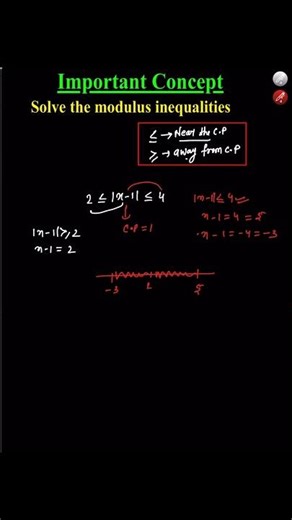 Important Concept
Solve the modulus inequalities
≤ → Near the C.P
≥ → away from C.P
2 ≤ |x-1| ≤ 4
C.P = 1
|x-1| ≤ 4
x-1 = 4 = 5
x-1 = -4 = -3
|x-1| ≥ 2
x-1 = 2
-3 1 5